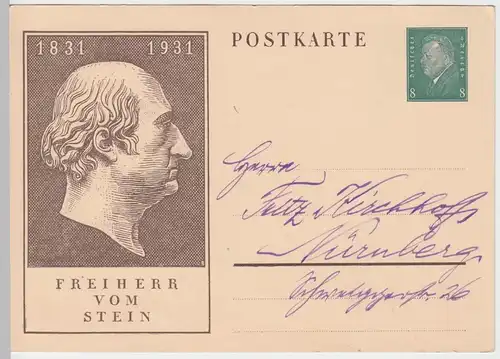 1831 1931
FREIHERR
VOM
STEIN
POSTKARTE
Deutsches Reich
8 8
Herrn
Fritz Kirchhoff
Nürnberg
Schweiggerstr. 26